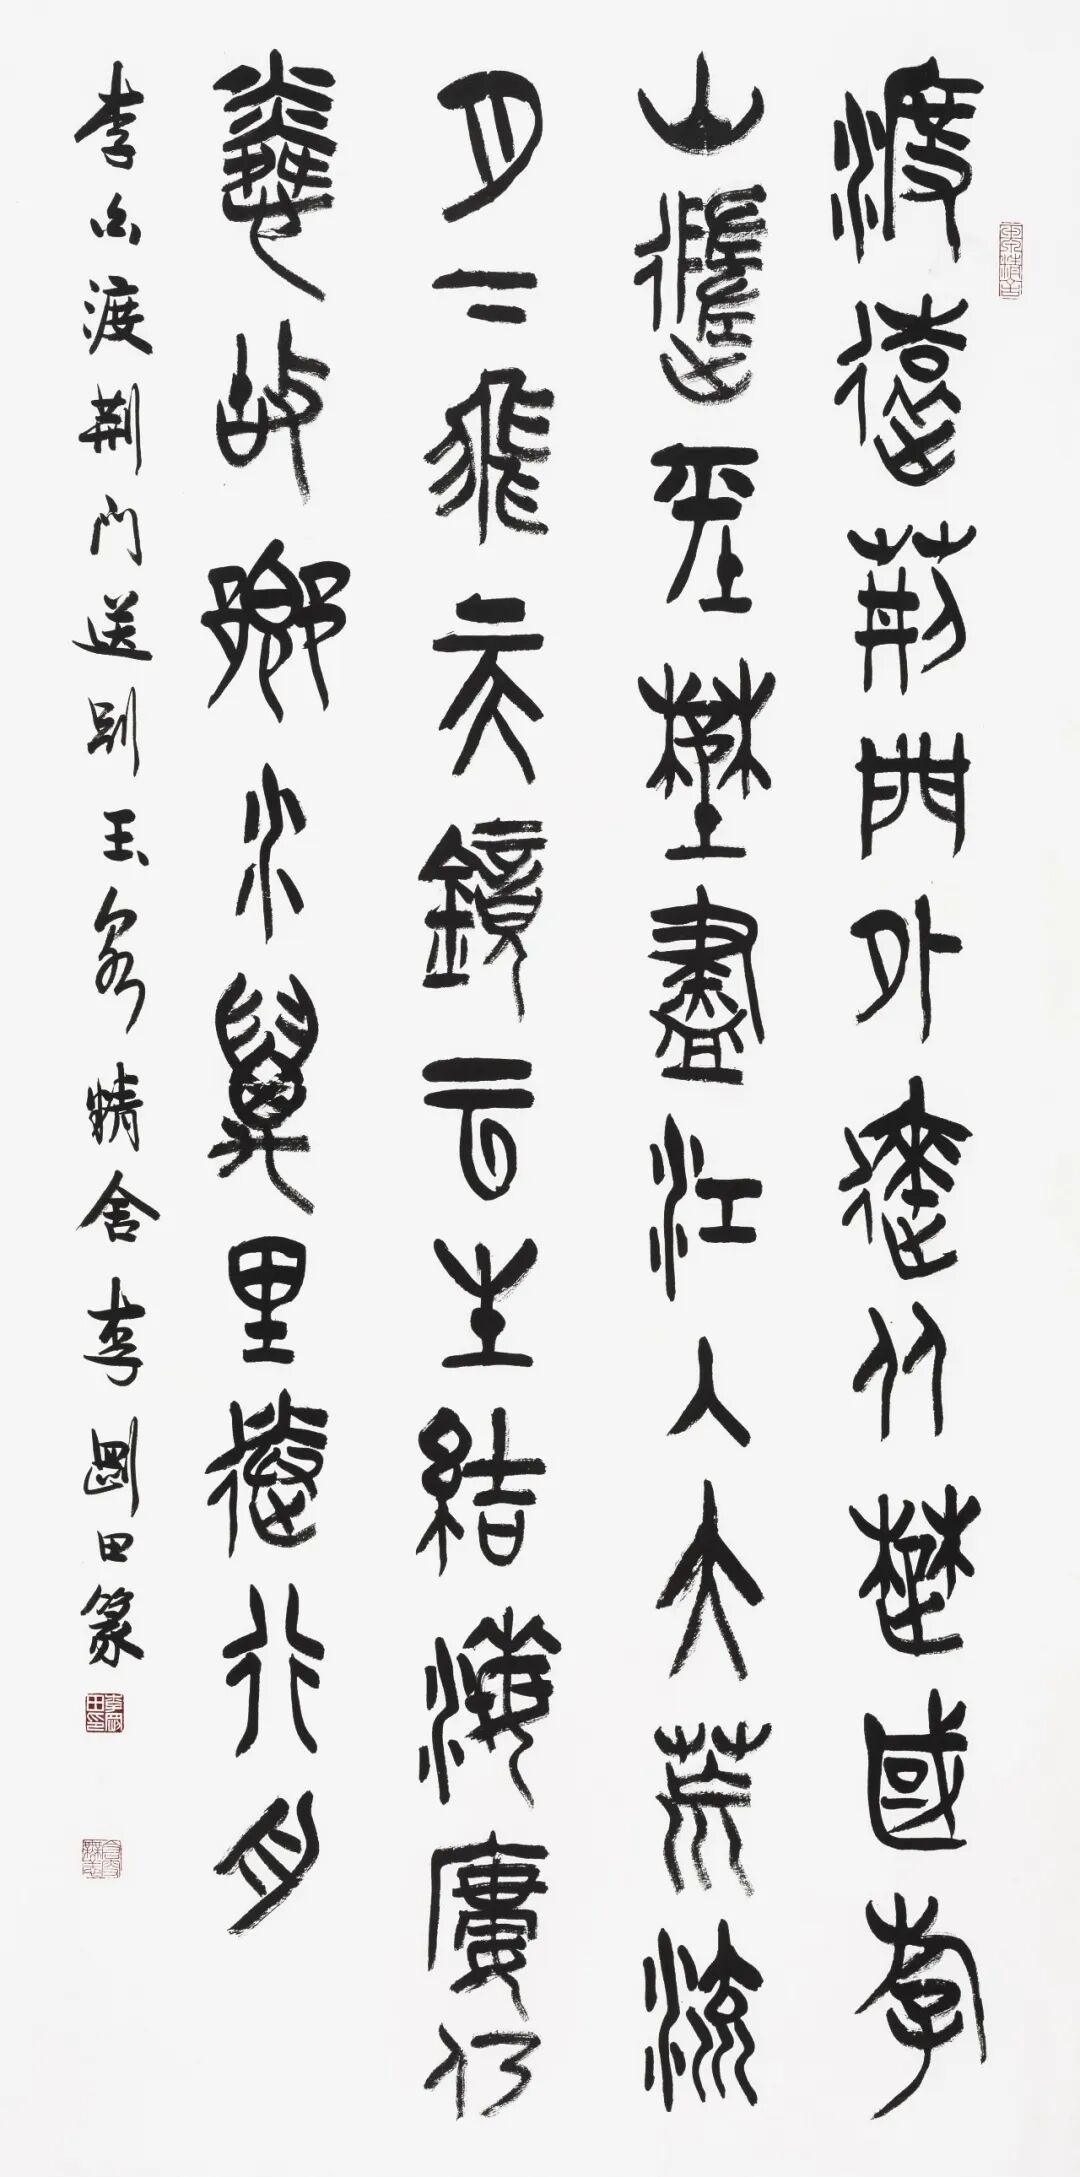 渡遠荆門外逨从楚國斿
山隨平埜盡江入大荒流
月下飛天鏡云生結海廔仍
憐故鄉水萬里送行舟
李白渡荆門送别玉泉精舍李剛田篆